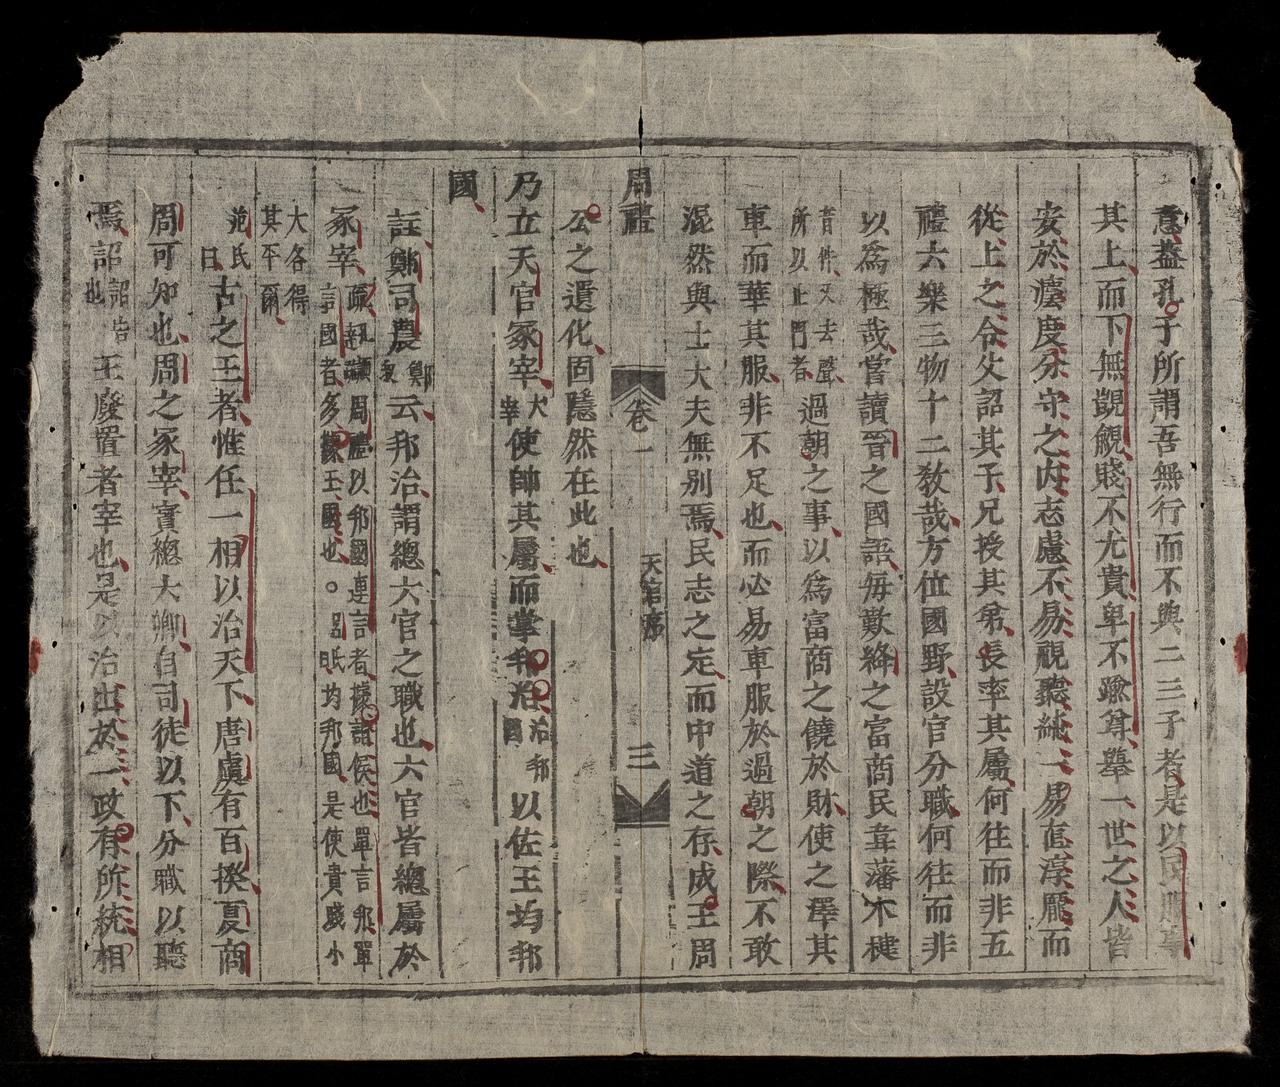 意蓋孔子所謂吾無行而不與二三子者是以民服事
其上而下無覬覦賤不尤貴卑不踰尊舉一世之人皆
安於廛度分守之内志慮不易視聽純一易直淳厖而
從上之令父詔其子兄授其弟長率其屬何往而非五
禮六樂三物十二敎哉方位國野設官分職何往而非
以爲極哉嘗讀晉之國語每歎絳之富商民韋藩木楗
昔件又去聲
所以止門者
過朝之事以爲富商之饒於財使之澤其
車而華其服非不足也而必易車服於過朝之際不敢
混然與士大夫無別焉民志之定而中道之存成王周
周禮
卷一
天官序
三
公之遺化固隱然在此也
乃立天官冢宰
大
宰
使帥其屬而掌邦治
治邦
國
以佐王均邦
國
註鄭司農
鄭
衆
云邦治謂總六官之職也六官皆總屬於
冢宰
疏孔顗周禮以邦國連言者據諸侯也單言邦單
言國者多據王國也○呂氏均邦國是使貴賤小
大各得
其平爾
范氏
曰
古之王者惟任一相以治天下唐虞有百揆夏商
周可知也周之冢宰實總大卿自司徒以下分職以聽
焉詔
詔告
也
王廢置者宰也是以治出於一政有所統相